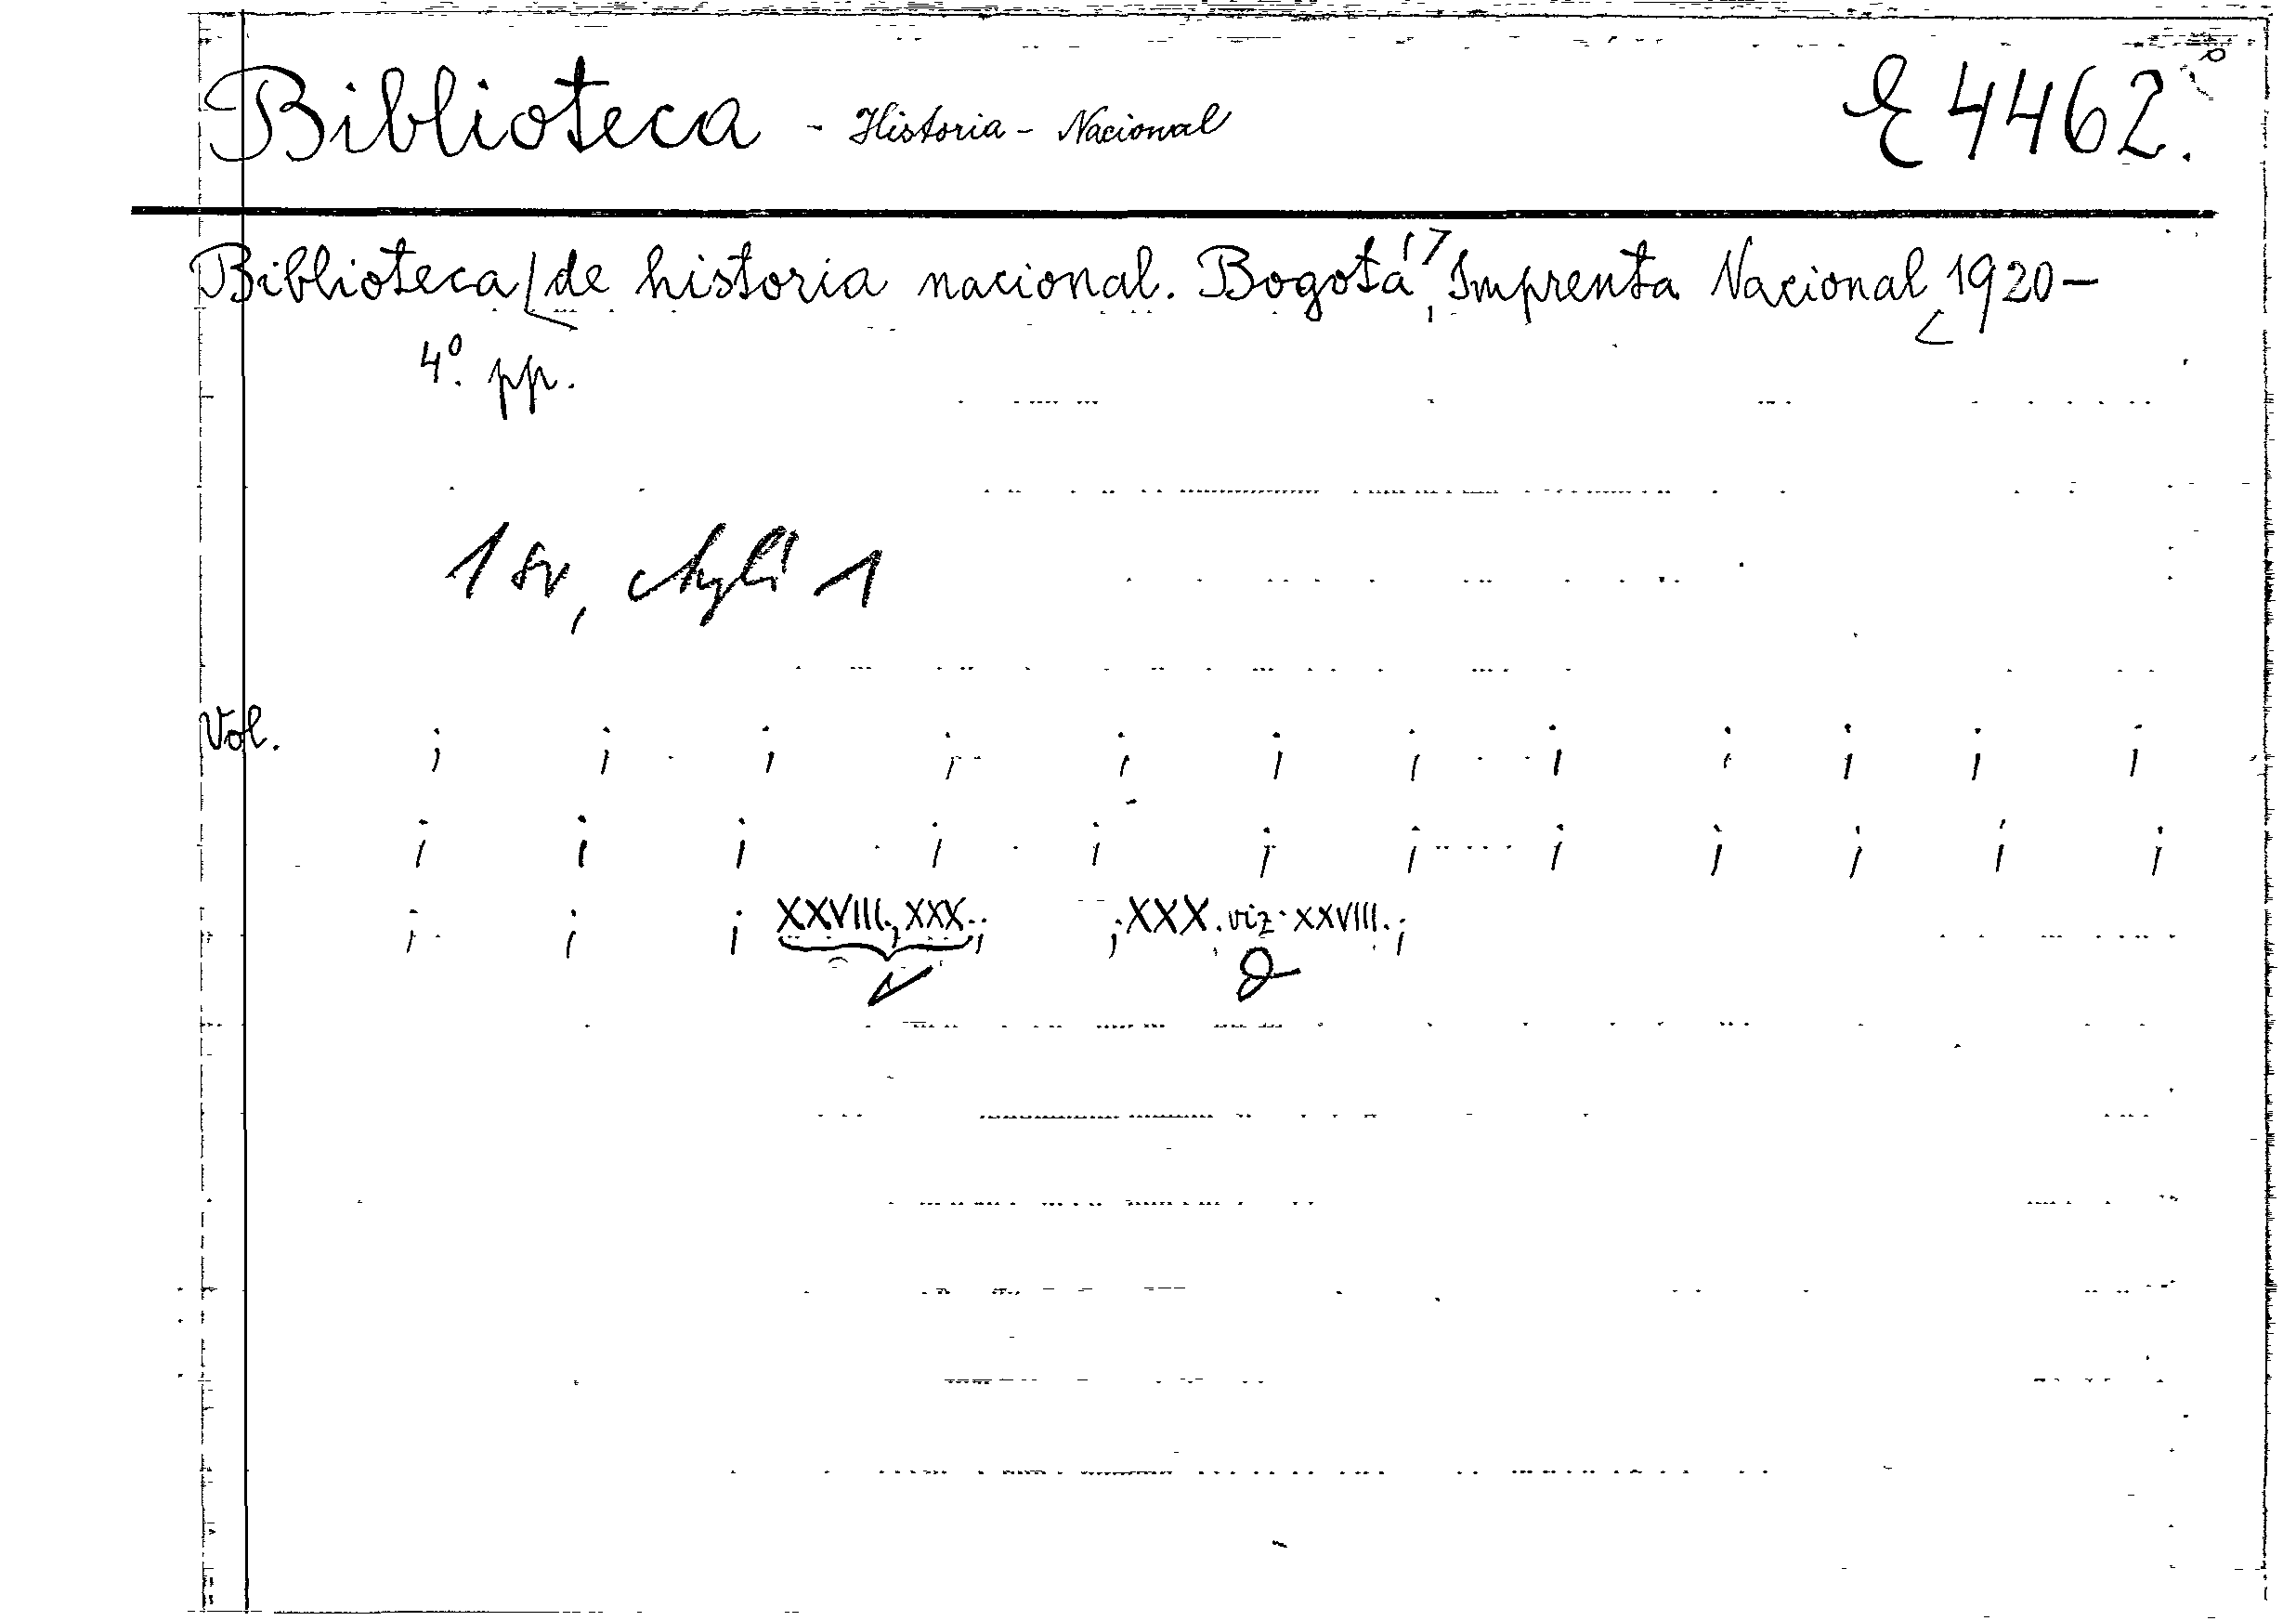 Biblioteca - Historia - Nacional E 4462.
Biblioteca de historia nacional. Bogotá, Imprenta Nacional 1920-
4º. pp.
1 sv, chybí 1
Vol. ; ; ; ; ; ; ; ; ; ; ; ;
; ; ; ; ; ; ; ; ; ; ; ;
; ; ; XXVIII., XXX.; ; XXX. viz. XXVIII.;